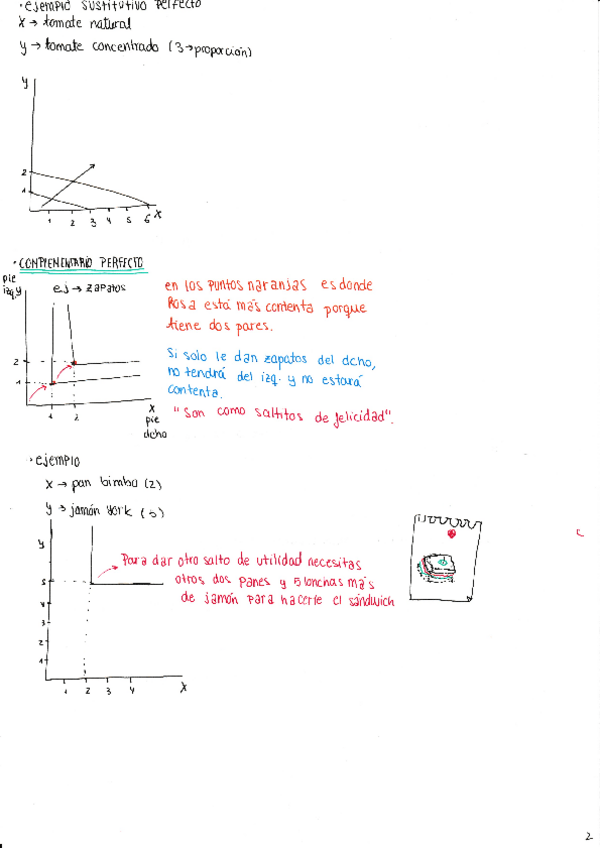 · ejemplo sustitutivo perfecto
x → tomate natural
y → tomate concentrado (3→proporción)
y
2
1
1 2 3 4 5 6 x
· COMPLEMENTARIO PERFECTO
pie
izq. y
ej → zapatos
2
1
1 2
x
pie
dcho
en los puntos naranjas es donde
Rosa está más contenta porque
tiene dos pares.
Si solo le dan zapatos del dcho,
no tendrá del izq. y no estará
contenta.
"Son como saltitos de felicidad".
· ejemplo
x → pan bimbo (2)
y → jamón york (5)
y
5
4
3
2
1
1 2 3 4 x
Para dar otro salto de utilidad necesitas
otros dos panes y 5 lonchas más
de jamón para hacerte el sándwich
2